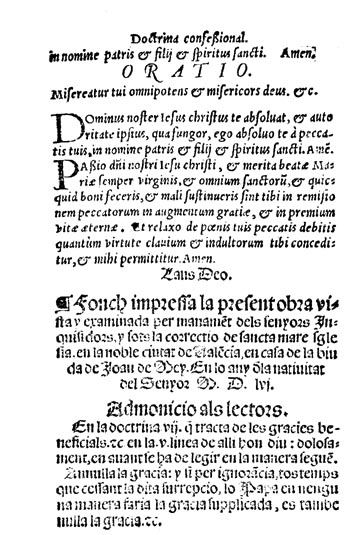 Doctrina confeßional.
in nomine patris & filij & spiritus sancti. Amen.
ORATIO.
Misereatur tui omnipotens & misericors deus. &c.
Dominus noster Iesus christus te absoluat, & auto
ritate ipsius, qua fungor, ego absoluo te à pecca-
tis tuis, in nomine patris & filij & spiritus sancti. Amē.
Paßio dñi nostri Iesu christi, & merita beatæ Ma-
riæ semper virginis, & omnium sanctorū, & quic-
quid boni feceris, & mali sustinueris sint tibi in remißio
nem peccatorum in augmentum gratiæ, & in premium
vitæ æternæ. Et relaxo de pœnis tuis peccatis debitis
quantùm virtute clauium & indultorum tibi concedi-
tur, & mihi permittitur. Amen.
Laus Deo.
¶ Fonch impressa la present obra vi-
sta y examinada per manamēt dels senyors In-
quisidors, y sots la correctio de sancta mare sgle
sia. en la noble ciutat de Valēcia, en casa de la biu
da de Joan de Mey. En lo any õla natiuitat
del Senyor M. D. lvj.
Admonicio als lectors.
En la doctrina vij. q̃ tracta de les gracies be-
neficials. ⁊c en la .v. linea de alli hon diu: dolosa-
ment, en auant se ha de legir en la manera seguēt.
Anulla la gracia: y si per ignorãcia, tostemps
que cessant la dita surrepcio, lo Papa en nengu
na manera faria la gracia supplicada, es tambe
nulla la gracia. ⁊c.